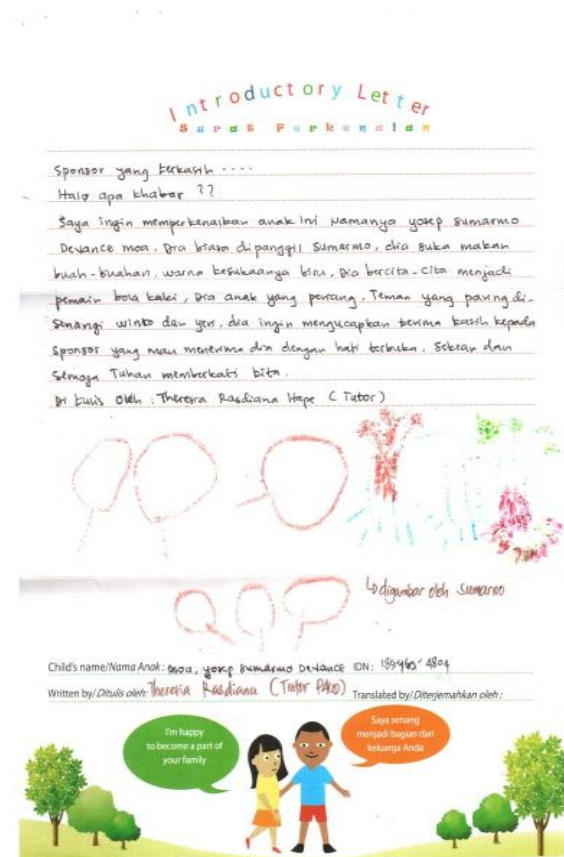 Introductory Letter
Surat Perkenalan
Sponsor yang terkasih ....
Halo apa khabar ??
Saya ingin memperkenalkan anak ini Namanya yosep sumarmo
Devance moa, Dia biasa dipanggil Sumarmo, dia suka makan
buah-buahan, warna kesukaanya biru, Dia bercita-cita menjadi
pemain bola kaki, Dia anak yang periang. Teman yang paling di-
senangi winto dan yeri, dia ingin mengucapkan terima kasih kepada
sponsor yang mau menerima dia dengan hati terbuka. Sekian dan
Semoga Tuhan memberkati kita.
Di tulis oleh : Theresia Rasdiana Hape (Tutor)
↳ digambar oleh Sumarmo
Child's name/Nama Anak : moa, yosep sumarmo Devance IDN : 4804
Written by/Ditulis oleh: Theresia Rasdiana (Tutor ) Translated by/Diterjemahkan oleh :
I'm happy
to become a part of
your family
Saya senang
menjadi bagian dari
keluarga Anda